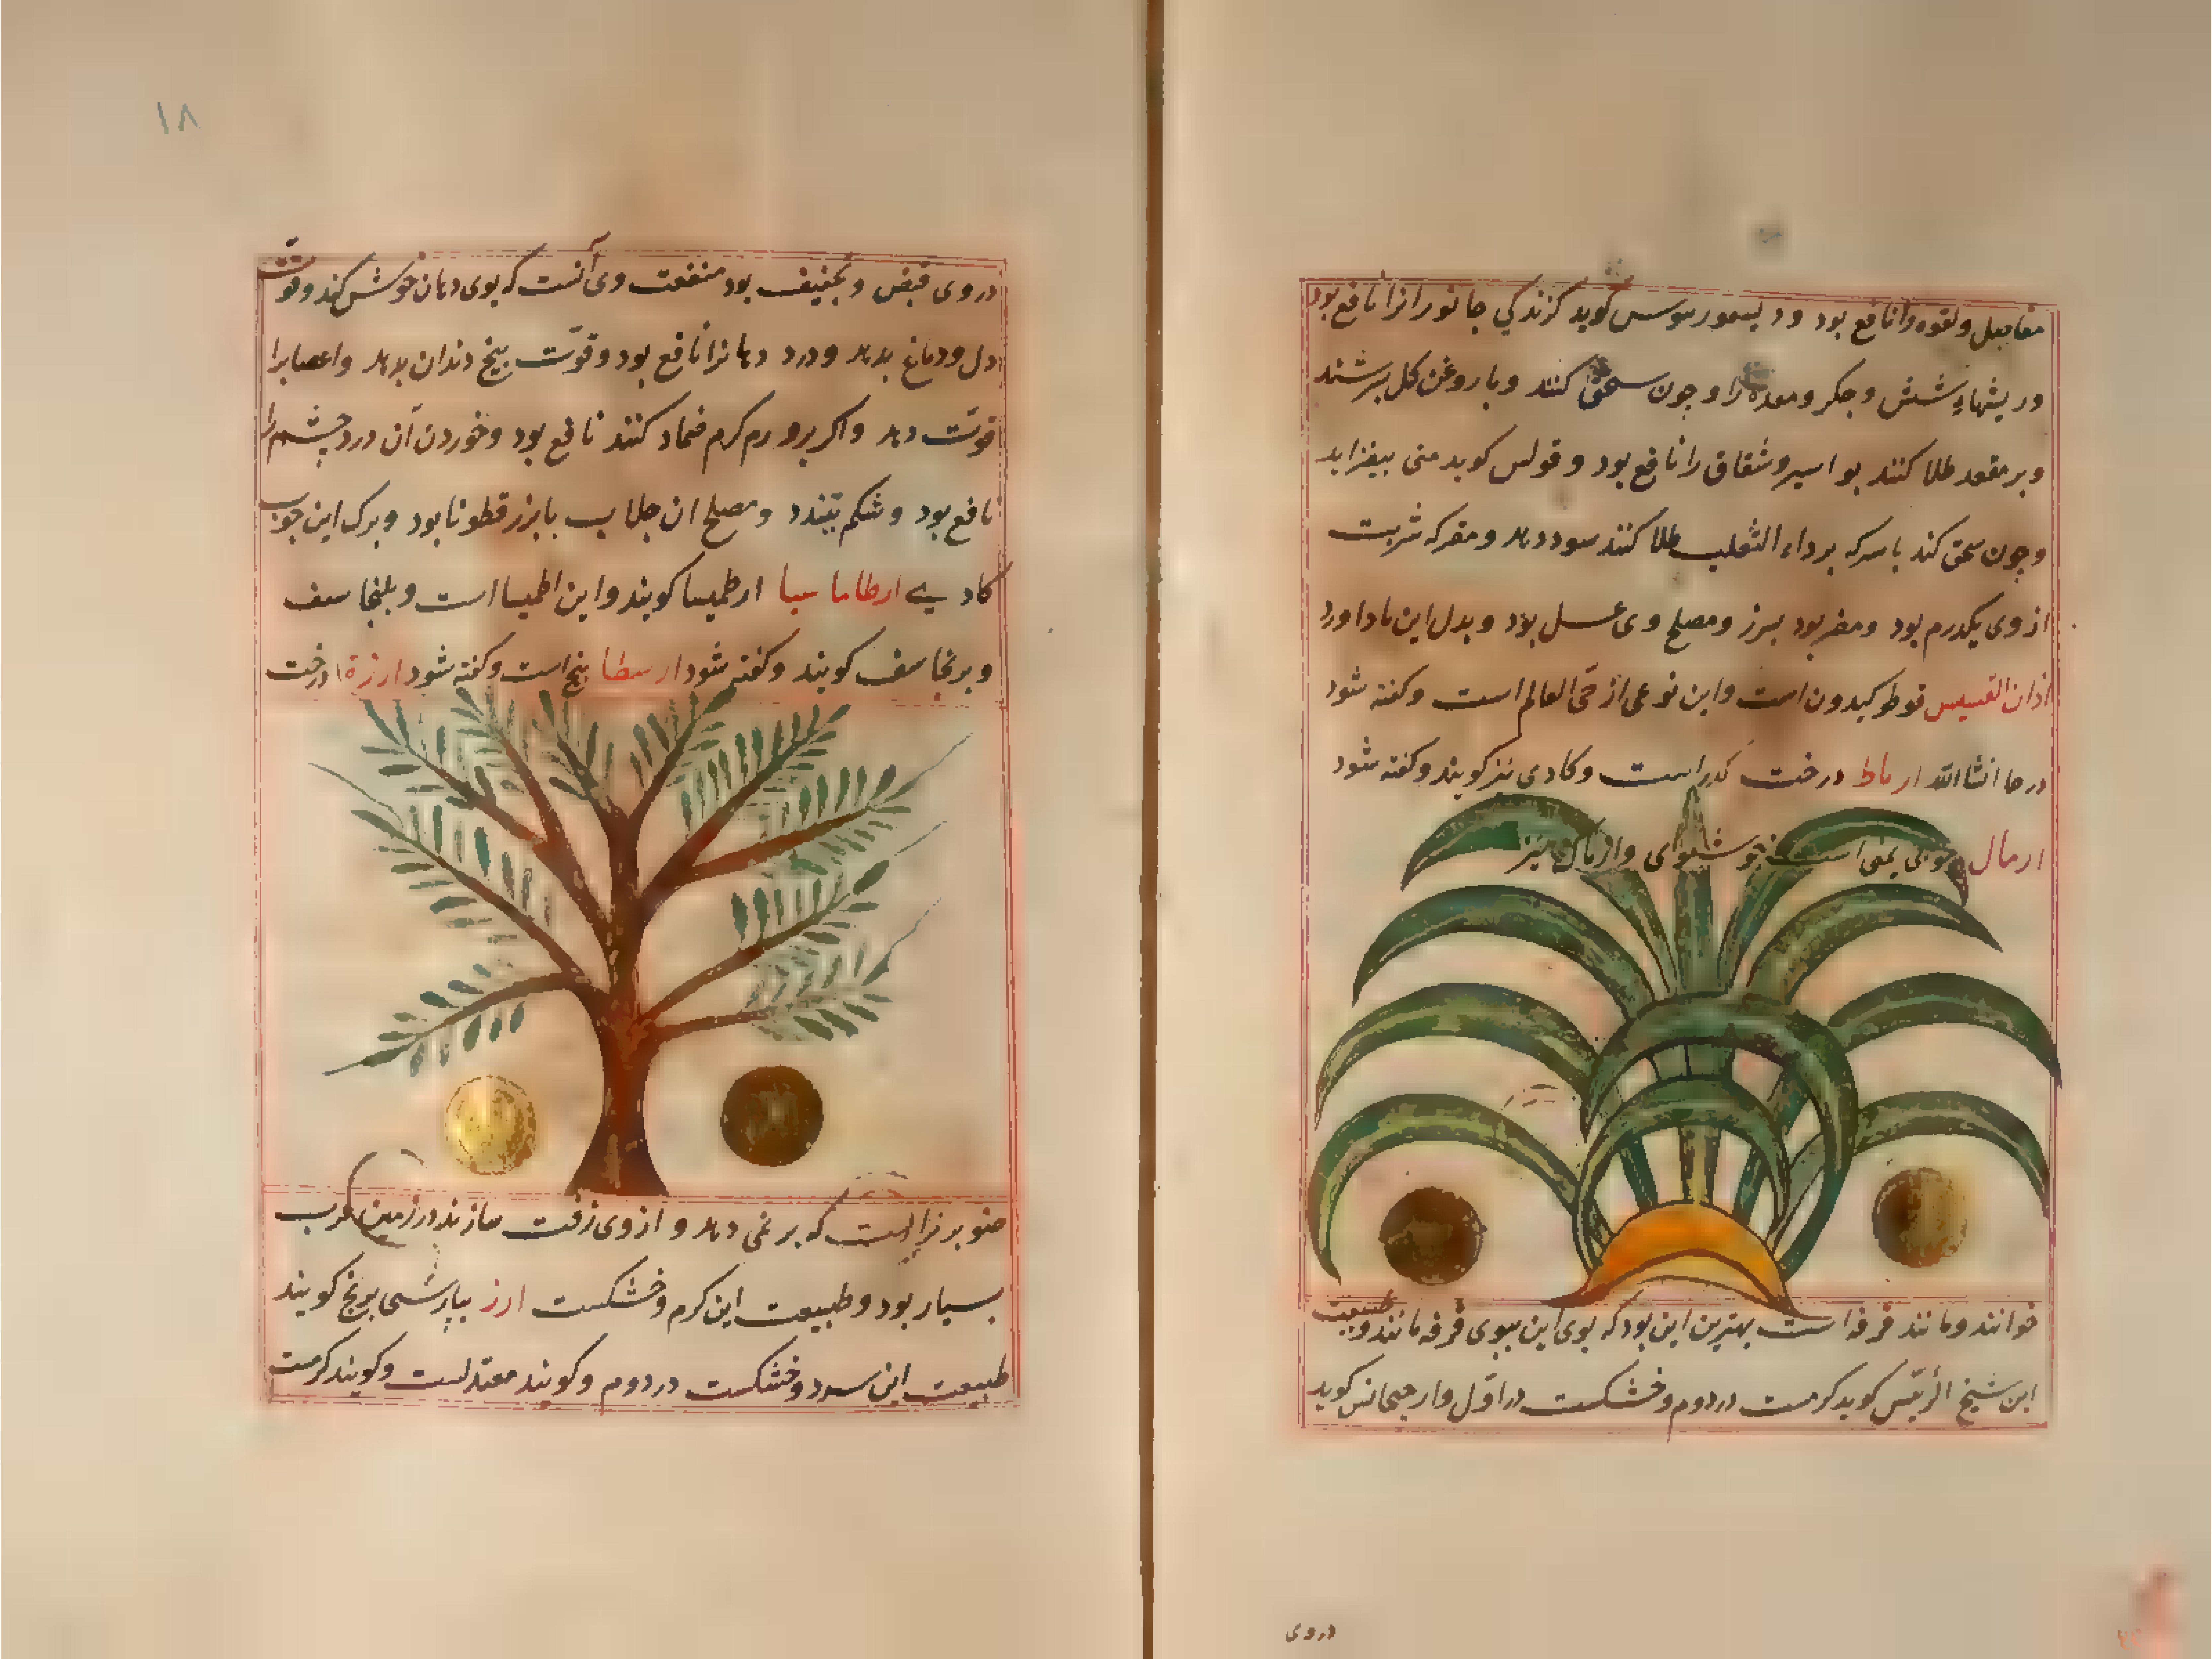 مفاصل ولقوه را نافع بود و دیسقوریدوس کوید کزندکی جانورانرا نافع بود
و ریشهاء شش و جکر و معده را و چون سحق کنند و با روغن کل بسرشند
و بر مقعد طلا کنند بواسیر و شقاق را نافع بود و فولس کوید منی بیفزاید
و چون سحق کند با سرکه بر داء الثعلب طلا کنند سود دهد و مقرکه شربت
از وی یکدرم بود و مضر بود بسرز و مصلح وی عسل بود و بدل این
اذان القسیس قوطولیدون است و این نوعی از حی العالم است و کفته شود
در حا انشاالله ارماط درخت کدر است و کادی نیز کویند و کفته شود
ارمال چوبی یمنی است خوشبوی و ارماک نیز
خوانند و مانند قرفه است بهترین این بود که بوی این ببوی قرفه مانند و طبیعت
این شیخ الرئیس کوید کرمست در دوم و خشکست در اول و ارجیجانس کوید
در وی
۱۸
در وی قبض و تجفیف بود منفعت وی آنست که بوی دهان خوش کند و قوت
دل و دماغ بدهد و درد دهانرا نافع بود و قوّت بیخ دندان بدهد و اعصابرا
قوّت دهد و اکر بر ورم کرم ضماد کنند نافع بود و خوردن آن درد چشم را
نافع بود و شکم ببندد و مصلح ان جلاب با بزرقطونا بود و برک این چوب
کادیی ارطاماسیا ارطمیسا کویند و این اطمیسا است و بلنجاسف
و برنجاسف کویند و کفته شود ارسطا بنج است و کفته شود ارزة درخت
صنوبر نر است که بر نمی دهد و از وی زفت سازند در زمین عرب
بسیار بود و طبیعت این کرم و خشکست ارز بپارسی برنج کویند
طبیعت این سرد و خشکست در دوم و کویند معتدلست و کویند کرمست